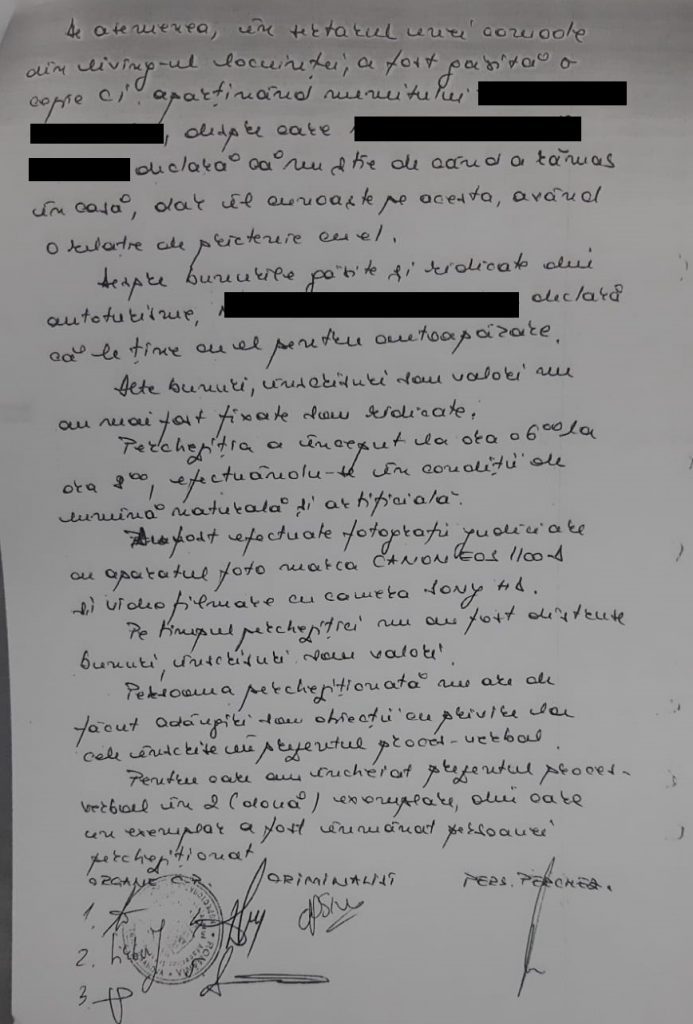 De asemenea, în sertarul unei comode
din living-ul locuinței, a fost găsită o
copie CI aparținând numitului
, despre care
declară că nu știe de când a rămas
în casă, dar îl cunoaște pe acesta, având
o relație de prietenie cu el.
Despre bunurile găsite și ridicate din
autoturisme, declară
că le ține cu el pentru autoapărare.
Alte bunuri, înscrisuri sau valori nu
au mai fost fixate sau ridicate.
Percheziția a început la ora 06⁰⁰ la
ora 8⁰⁰, efectuându-se în condiții de
lumină naturală și artificială.
Au fost efectuate fotografii judiciare
cu aparatul foto marca CANON EOS 1100-D
și video filmare cu camera SONY HD.
Pe timpul percheziției nu au fost distruse
bunuri, înscrisuri sau valori.
Persoana percheziționată nu are de
făcut adăugiri sau obiecții cu privire la
cele înscrise în prezentul proces-verbal.
Pentru care am încheiat prezentul proces-
verbal în 2 (două) exemplare, din care
un exemplar a fost înmânat persoanei
percheziționat
ORGANE C.P. CRIMINALIȘTI PERS. PERCHEZ.
1.
2.
3.
ROMÂNIA